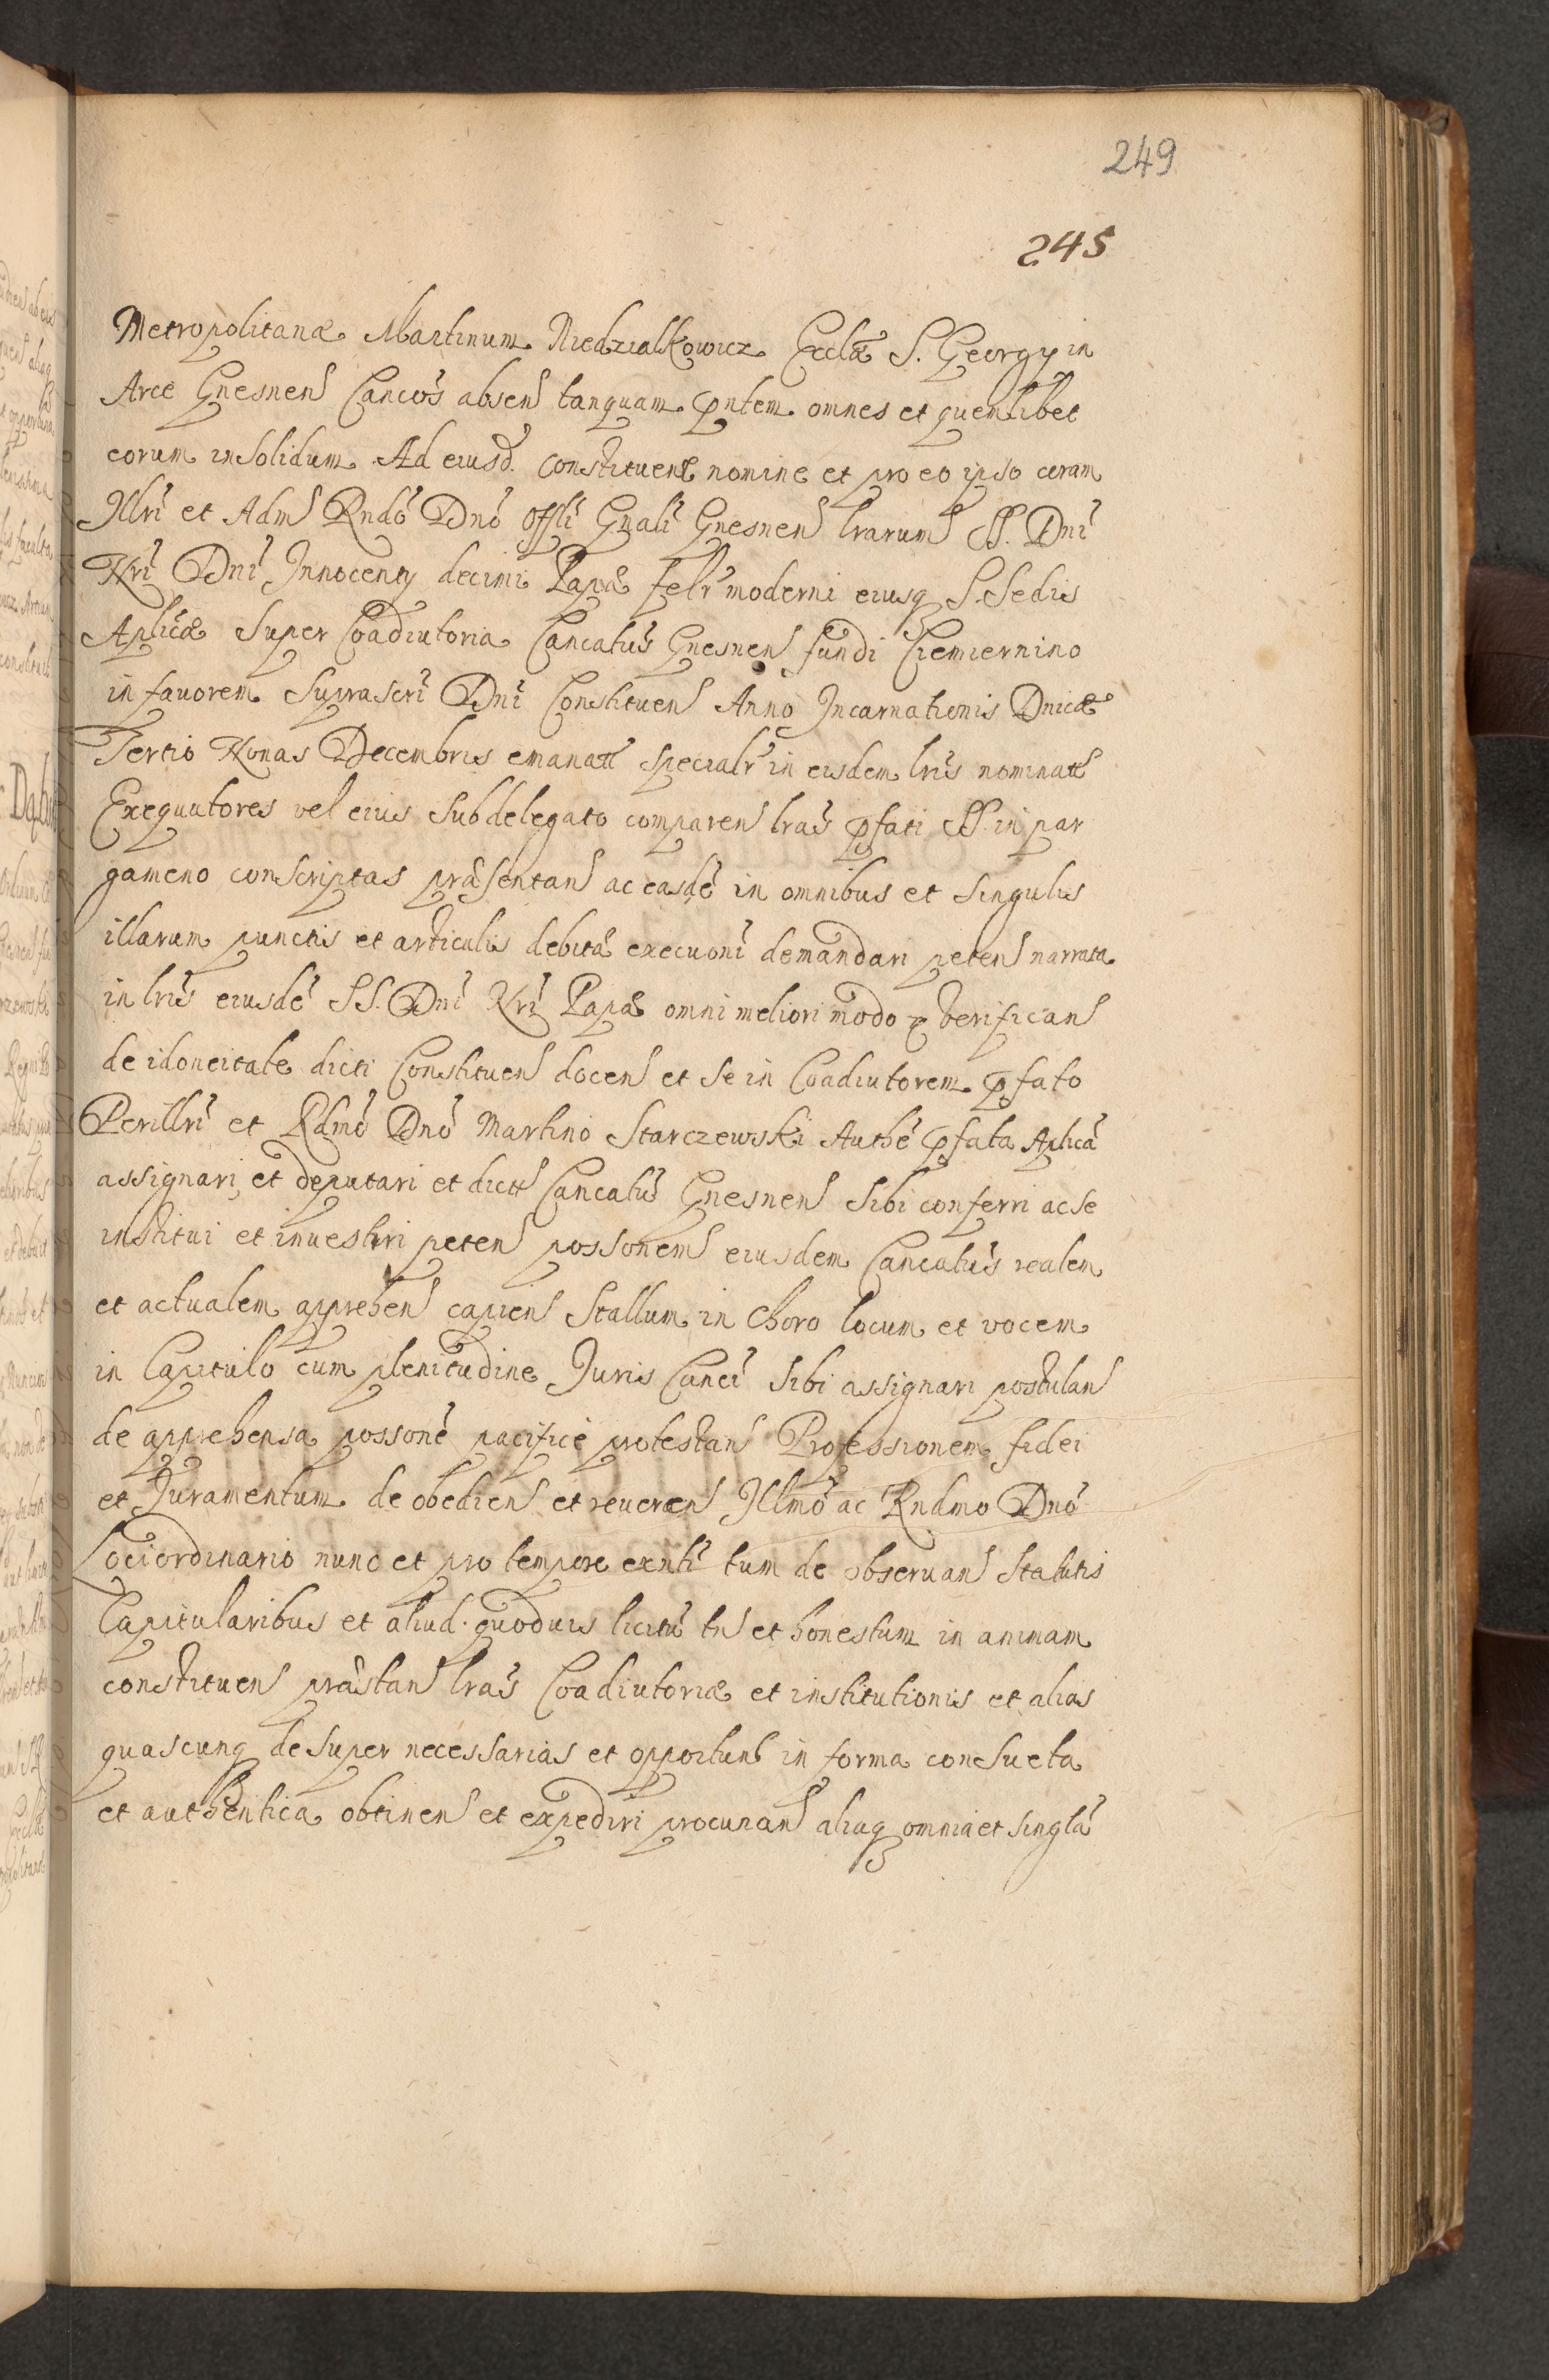 249
245
Metropolitanæ Martinum Niedzialkowicz Ecclæ S. Georgy in
Arce Gnesnen Cancos absen tanquam pntem omnes et quemlibet
eorum insolidum Ad eiusd. constituen nomine et pro eo ipso coram
Illri et Adm Rndo Dno Offli Gnali Gnesnen lrarum SS. Dni
Nri Dni Innocenty decimi Papæ felr moderni eiusq S. Sedis
Aplicæ super Coadiutoria Cancatus Gnesnen fundi Ciemiernino
in fauorem suprascri Dni Constituen Anno Incarnationis Dnicæ
Tertio Nonas Decembris emanatt specialr in eisdem lris nominatt
Exequutores vel eius subdelegato comparen lras pfati SS. in par
gameno conscriptas præsentan ac easde in omnibus et singulis
illarum punctis et articulis debita execuoni demandari peten narrata
in lris eiusde SS. Dni Nri Papæ omni meliori modo verifican
de idoneitate dicti Constituen docen et se in Coadiutorem pfato
Perillri et Rdmo Dno Martino Starczewski Authe pfata Aplica
assignari et deputari et dictt Cancatus Gnesnen sibi conferri ac se
institui et inuestiri peten possonem eiusdem Cancatus realem
et actualem apprehen capien Stallum in Choro locum et vocem
in Capitulo cum plenitudine Juris Canci sibi assignari postulan
de apprehensa possone pacifice protestan Professionem fidei
et Juramentum de obedien et reueren Illmo ac Rndmo Dno
Lociordinario nunc et pro tempore exnti tum de obseruan Statutis
Capitularibus et aliud quoduis licitu tn et honestum in animam
constituen præstan lras Coadiutoriæ et institutionis et alias
quascunq desuper necessarias et opportun in forma consueta
et authentica obtinen et expediri procuran aliaq omnia et singla